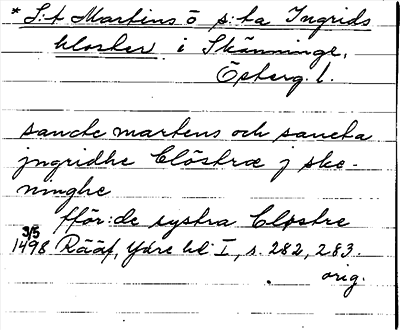 * S:t Martins o s:ta Ingrids
kloster i Skänninge,
Österg. l.
sancte martens och sancta
jngridhe Clöstræ j ske-
ninghe
fför:de systra Closstre
3/5
1498 Rääf, Ydre hd I, s. 282, 283.
orig.